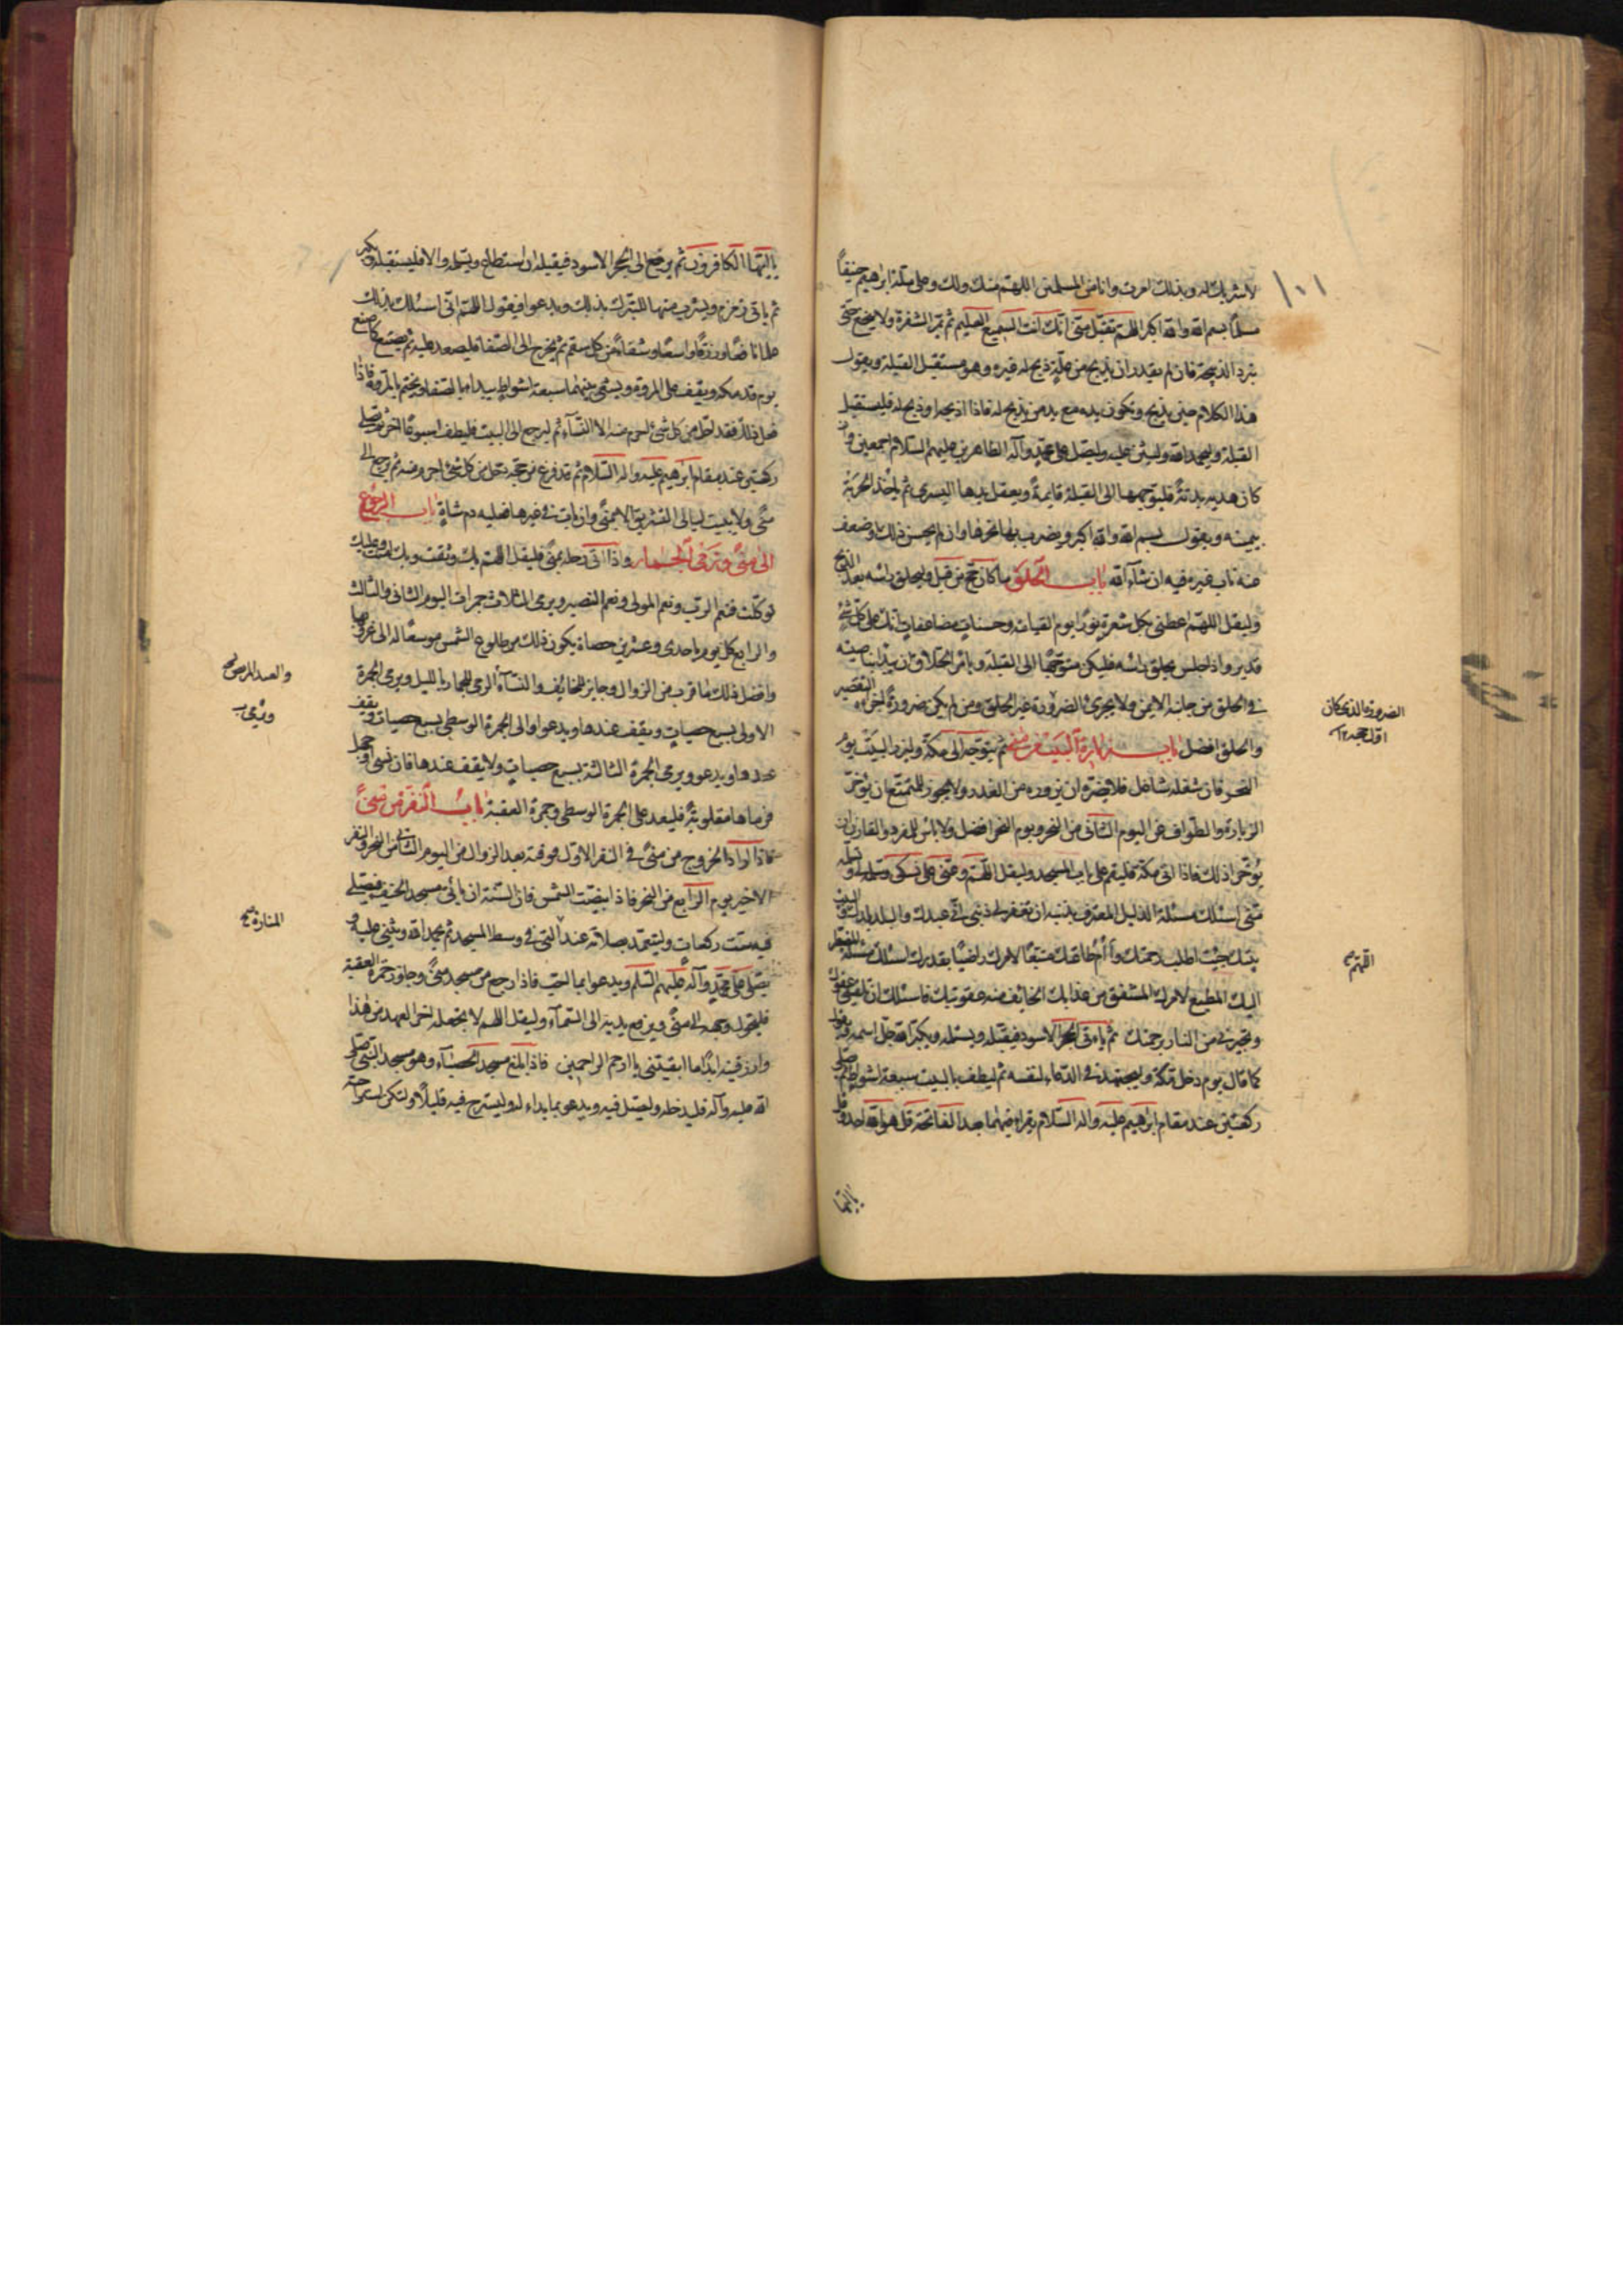 ١٠١
لا شريك له وبذلك امرت وانا من المسلمين اللهم منك ولك وعلى ملة ابراهيم حنيفاً
مسلماً بسم الله والله اكبر اللهم تقبل منى انك انت السميع العليم ثم يمر الشفرة ولا ينخع حتى
تبرد الذبيحة فان لم يقدر ان يذبح من علة ذبح له غيره وهو مستقبل القبلة ويقول
هذا الكلام حين يذبح وتكون يده مع يد من يذبح له فاذا اذبحها وذبح له فليستقبل
القبلة وليحمد الله وليثن عليه وليصل على محمد وآله الطاهرين عليهم السلام اجمعين وان
كان هديه بدنة فليوجهها الى القبلة قايمة ويعقل يدها اليسرى ثم ياخذ الحربة
بيمينه ويقول بسم الله والله اكبر ويضرب بها نحرها وان لم يحسن ذلك وضعف
عنه ناب غيره فيه ان شاء الله باب الحلق من قبل ويحلق راسه بعد الذبح
وليقل اللهم اعطنى بكل شعرة نورا يوم القيامة وحسنات مضاعفات انك على كل شئ
قدير واذا جلس يحلق راسه فليكن متوجهاً الى القبلة ويامر الحلاق ان يبدا بناصيته
فى الحلق من جانبه الايمن ولا يجزئ الصرورة غير الحلق ومن لم يكن صرورة اجزاه التقصير
والحلق افضل باب زيارة البيت من منى ثم يتوجه الى مكة وليزر البيت يوم
النحر فان شغله شاغل فلا يضره ان يزوره من الغد ولا يجوز للمتمتع ان يؤخر
الزيارة والطواف عن اليوم الثانى من النحر ويوم النحر افضل ولا باس للمفرد والقارن ان
يؤخر اذلك فاذا اتى مكة فليقم على باب المسجد وليقل اللهم اعنى على نسكى وسلمنى له وتسلمه
منى اسئلك مسئلة الذليل المعترف بذنبه ان تغفر لى ذنبى انى عبدك والبلد بلدك والبيت
بيتك جئت اطلب رحمتك وأؤم طاعتك متبعًا لامرك راضيًا بقدرك اسئلك مسئلة المضطر
اليك المطيع لامرك المشفق من عذابك الخائف من عقوبتك فاسئلك ان تلقنى عفوك
وتجيرنى من النار برحمتك ثم ياتى الحجر الاسود فيقبله ويستلمه ويكبر الله جل اسمه ويقول
كما قال يوم دخل مكة وليجتهد فى الدعاء لنفسه ثم ليطف بالبيت سبعة اشواط ثم يصلى
ركعتين عند مقام ابرهيم عليه واله السلام يقراء فيهما بعد الفاتحة قل هو الله احد وقل
يا ايها
الصرورة الذى كان
اول حجه ١٢
اللهم
يا ايها الكافرون ثم يرجع الى الحجر الاسود فيقبله ان استطاع ويستلمه والا فليستقبله ويكبر
ثم ياتى زمزم ويشرب منها للتبرك بذلك ويدعوا فيقول اللهم انى اسئلك بذلك
علما نافعًا ورزقًا واسعًا وشفاءً من كل سقم ثم يخرج الى الصفا فليصعد عليه ثم يصنع كما صنع
يوم قدم مكه ويقف على المروة ويسعى بينهما سبعة اشواط يبداء بالصفا ويختم بالمروة فاذا
فعل ذلك فقد احل من كل شئ احرم منه الا النساء ثم ليرجع الى البيت فليطف اسبوعًا اخر ويصلى
ركعتين عند مقام ابرهيم عليه واله السلام ثم قد فرغ من حجه وحل من كل شئ احرم منه ثم يرجع الى
منى ولا يبيت ليالى التشريق الا بمنى وان بات فى غيرها فعليه دم شاة باب الرجوع
الى منى ورمى الجمار واذا اتى رحله بمنى فليقل اللهم بك وثقت وبك امنت وعليك
توكلت فنعم الرب ونعم المولى ونعم النصير ويرمى الثلاث جمرات اليوم الثانى والثالث
والرابع كل يوم باحدى وعشرين حصاة يكون ذلك من طلوع الشمس موسعًا له الى غروبها
وافضل ذلك ما قرب من الزوال وجايز للخائف والنساء الرمى للجمار بالليل ويرمى الجمرة
الاولى بسبع حصيات ويقف عندها ويدعوا والى الجمرة الوسطى بسبع حصيات ويقف
عندها ويدعو ويرمى الجمرة الثالثة بسبع حصيات ولا يقف عندها فان نسى او جهل
فرماها مقلوبة فليعد على الجمرة الوسطى وجمرة العقبة باب النفر من منى
فاذا اراد الخروج من منى فى النفر الاول فوقته بعد الزوال من اليوم الثالث من النحر والنفر
الاخير يوم الرابع من النحر فاذا ابيضت الشمس فان السنة ان ياتى مسجد الخيف فيصلى
فيه ست ركعات وليتعمد بصلاته عند التى فى وسط المسجد ثم يحمد الله ويثنى عليه و
يصلى على محمد وآله عليهم السلم ويدعوا بما احب فاذا رجع من مسجد منى وجاوز جمرة العقبة
فليحول وجهه الى منى ويرفع يديه الى السماء وليقل اللهم لا تجعله اخر العهد من هذا
وارزقنيه ابدًا ما ابقيتنى يا ارحم الراحمين فاذا بلغ مسجد الحصباء وهو مسجد النبى صلى
الله عليه وآله فليدخله وليصل فيه ويدعو بما بداء له وليسترح فيه قليلًا ولتكن استراحته
والعبد للمرض
ويرمى
المنارة